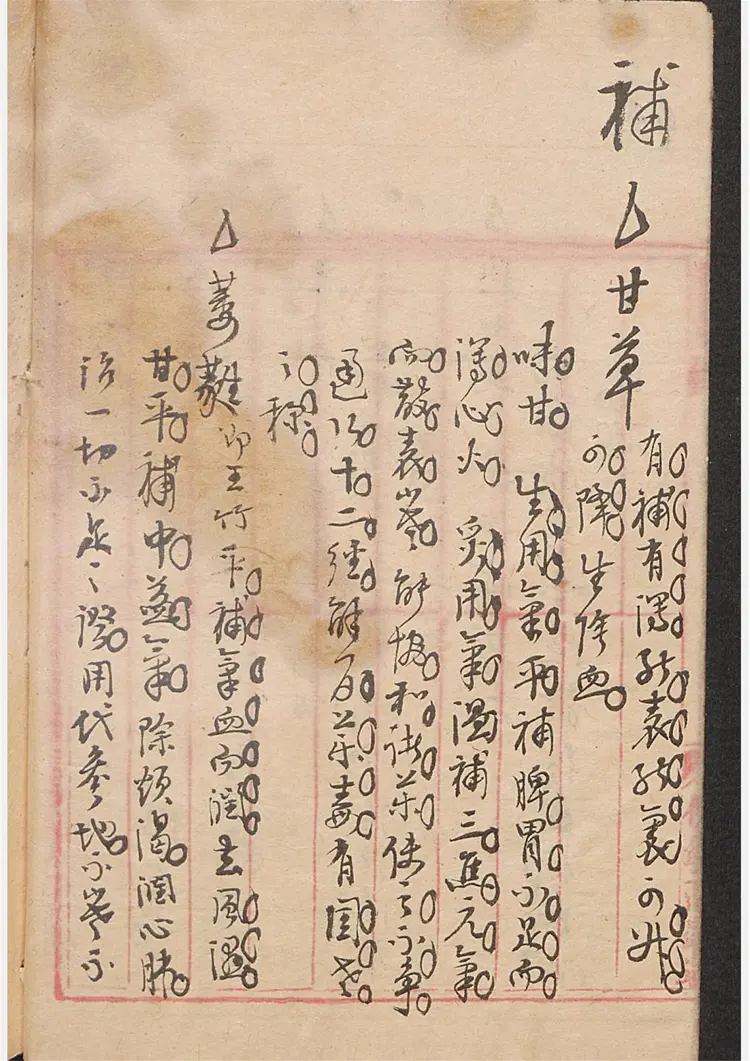 補
甘草
有補有瀉能表能裏可升
可降生降血
味甘 生用氣平補脾胃不足而
瀉心火 炙用氣溫補三焦元氣
而散表寒能協和諸藥使之不爭
通行十二經解百藥毒有國老
之稱
萎蕤即玉竹平補氣血而潤去風濕
甘平補中益氣除煩渴潤心肺
治一切不足之證用代參地不寒不